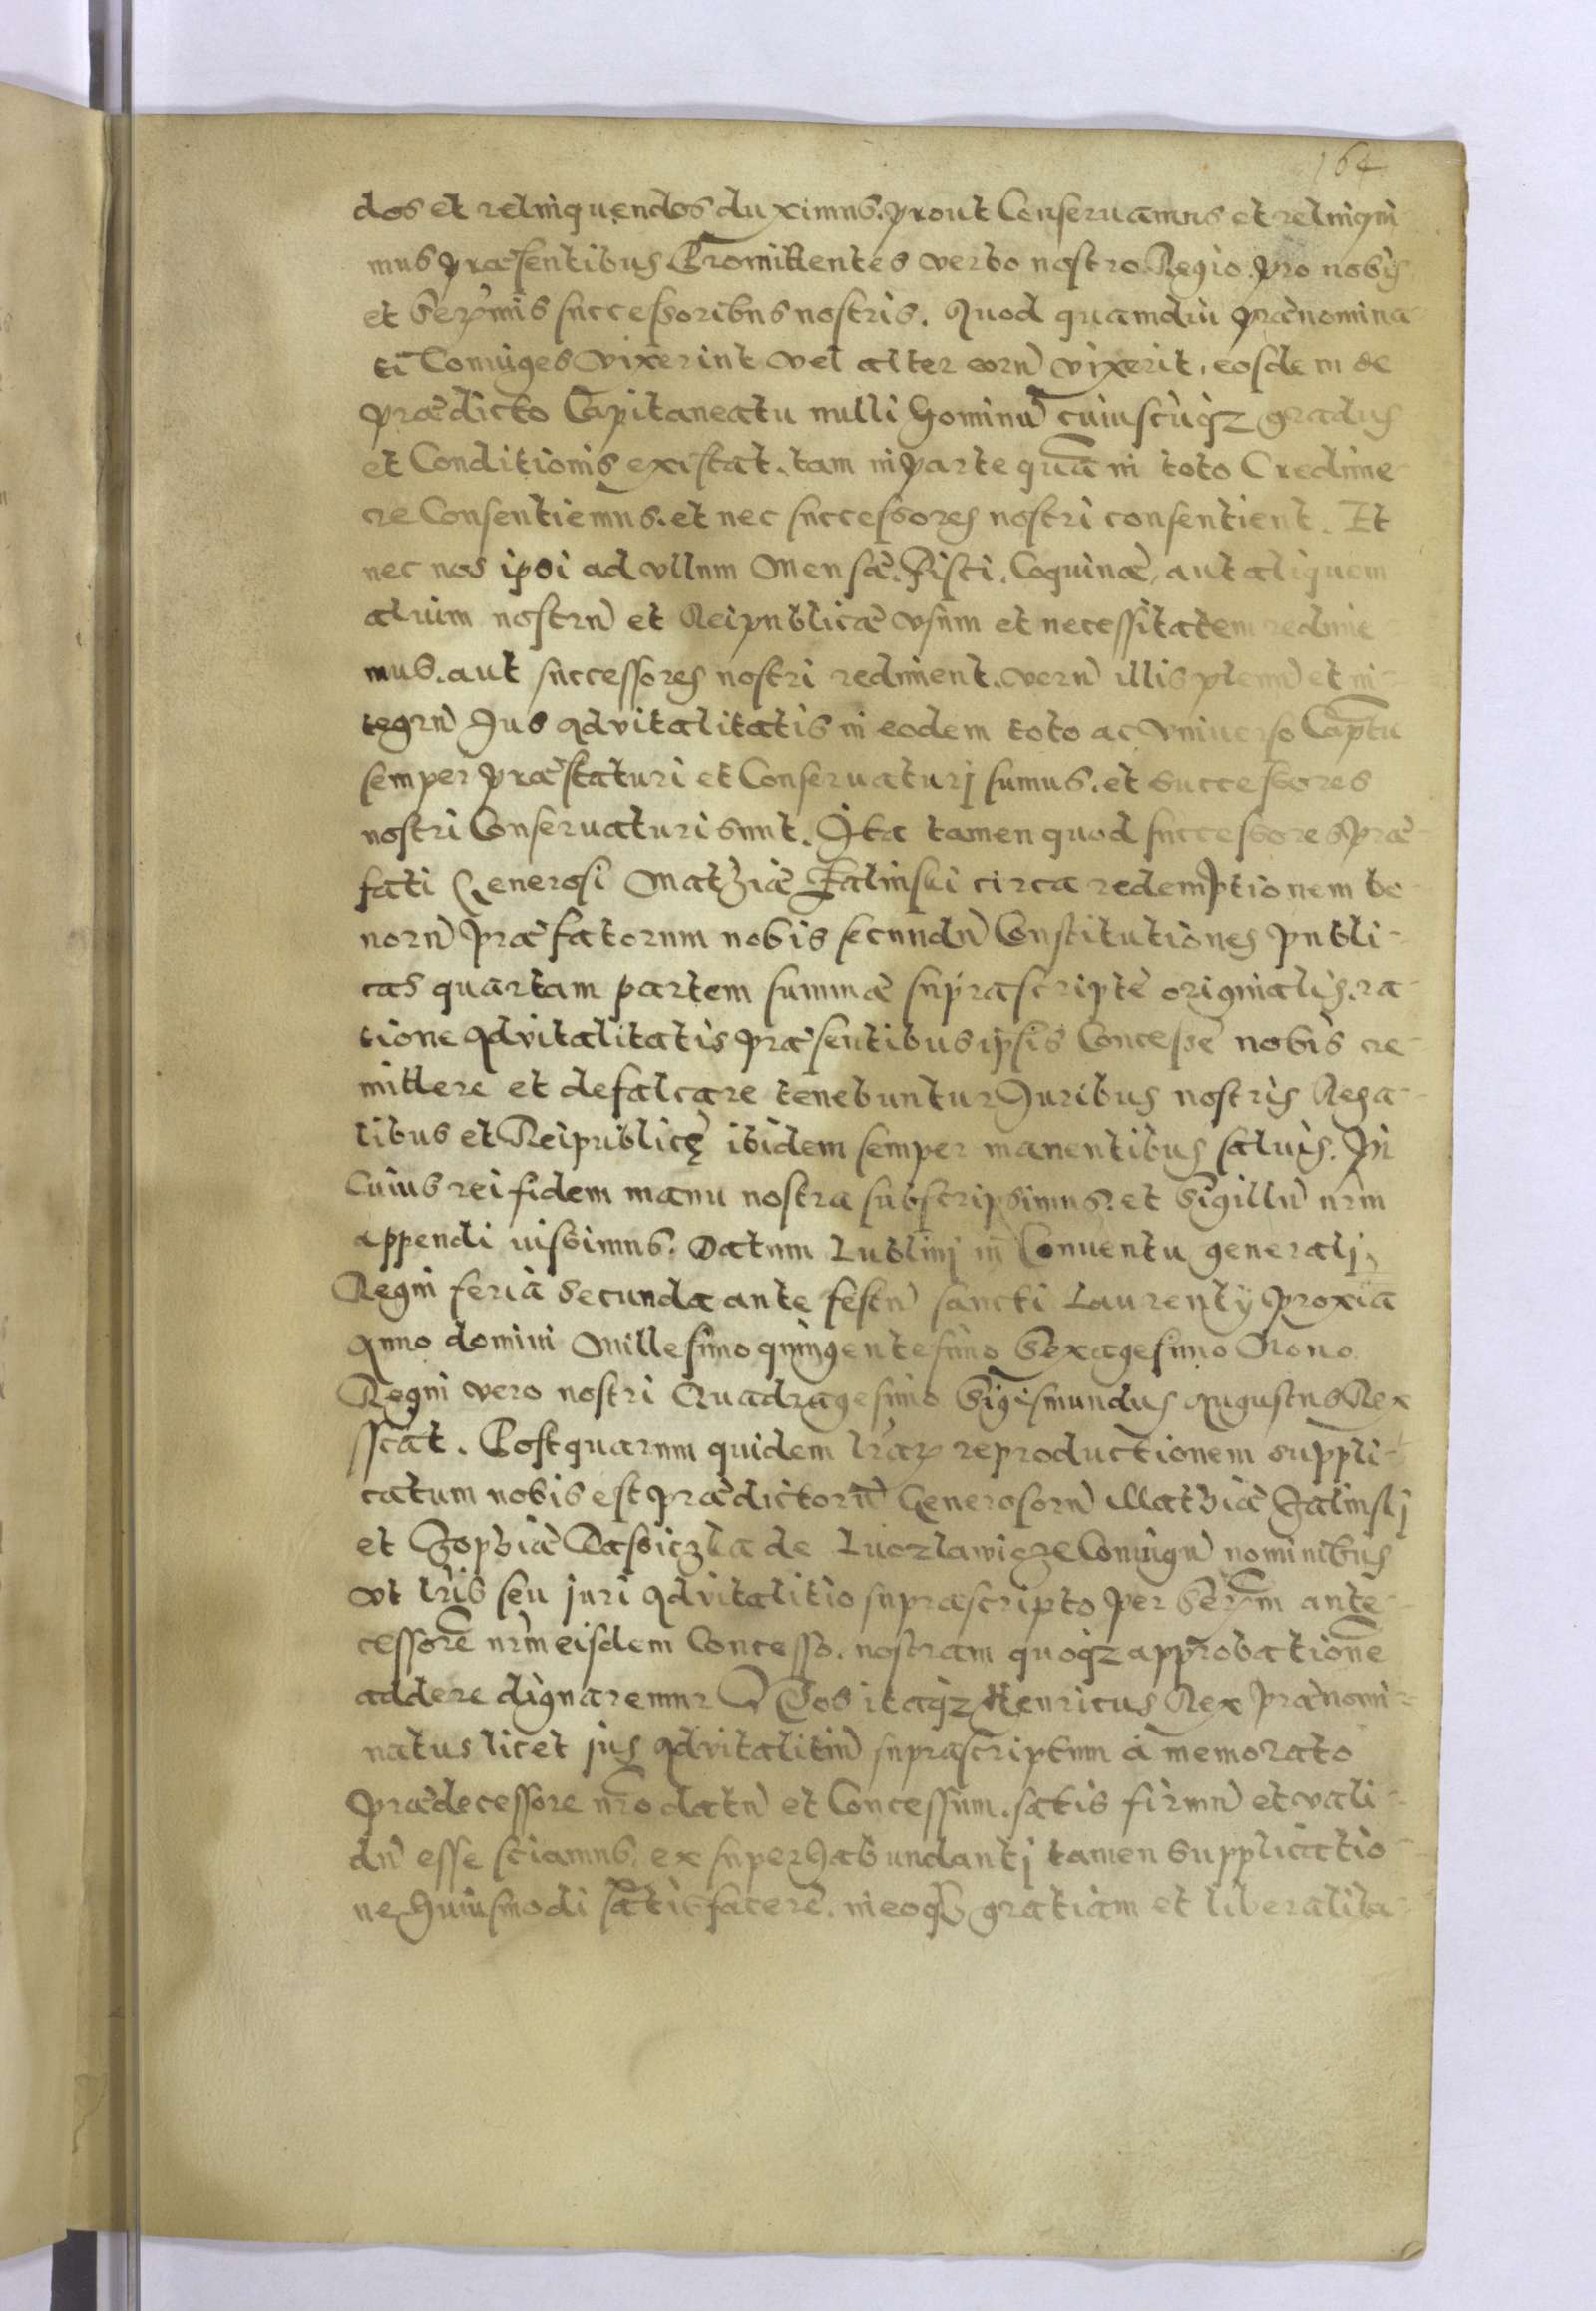 164
dos et relinquendos duximus. prout Conseruamus et relinqui
mus præsentibus Promittentes verbo nostro Regio. pro nobis
et Serᵐis successoribus nostris. Quod quamdiu prænomina
ti Coniuges vixerint vel alter eorū vixerit, eosdem de
prædicto Capitaneatu nulli hominū cuiuscūqz gradus
et Conditionis existat. tam in parte quā in toto redime
re Consentiemus. et nec successores nostri consentient. Et
nec nos ipsi ad vllum Mensæ. Fisci. Coquinæ, aut aliquem
alium nostrū et Reipublicæ vsum et necessitatem redime
mus. aut successores nostri rediment. verū illis plenū et in-
tegrū Jus aduitalitatis in eodem toto ac vniuerso Captu
semper præstaturi et Conseruaturj sumus. et successores
nostri Conseruaturi sunt. Ita tamen quod successores præ-
fati Generosi Mathiæ Zalinski circa redemptionem bo-
norū præfatorum nobis secundū Constitutiones publi-
cas quartam partem summæ suprascriptè originalis. ra-
tione aduitalitatis præsentibus ipsis Concessè nobis re-
mittere et defalcare tenebuntur Juribus nostris Rega-
libus et Reipublicę ibidem semper manentibus saluis. In
Cuius rei fidem manu nostra subscripsimus. et Sigillū nr̄m
appendi iussimus. Datum Lublinj in Conuentu generalj
Regni feria secunda ante festū sancti Laurentÿ proxiā
Anno domini Millesimo quingentesimo Sexagesimo Nono
Regni vero nostri Quadragesimo Sigismundus Augustus Rex
sscāt. Postquarum quidem lrarꝫ reproductionem suppli-
catum nobis est prædictorū Generosorū Mathiæ Zalinskj
et Zophiæ de Coniugū nominibus
vt lrīs seu juri aduitalitio suprascripto per Serᵐm ante-
cessorē nr̄m eisdem Concesso. nostram quoqz approbationē
addere dignaremur Nos itaqz Henricus Rex prænomi-
natus licet jus aduitalitiū suprascriptum à memorato
prædecessore nr̄o datū et Concessum. satis firmū et vali-
dū esse sciamus, ex superhabundantj tamen supplicatio
ne huiusmodi satisfacere. in eoqz gratiam et liberalita-